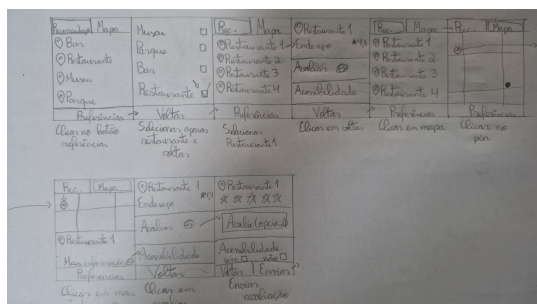 Recomendações Mapa
Bar
Restaurante
Museu
Parque
Preferências
Clicar no botão
preferências
Museu
Parque
Bar
Restaurante
Voltar
Selecionar apenas
restaurante e
voltar
Rec. Mapa
Restaurante 1
Restaurante 2
Restaurante 3
Restaurante 4
Preferências
Selecionar
Restaurante 1
Restaurante 1
Endereço
Avaliar
Acessibilidade
Voltar
Clicar em voltar
Rec. Mapa
Restaurante 1
Restaurante 2
Restaurante 3
Restaurante 4
Preferências
Clicar em mapa
Rec. Mapa
Preferências
Clicar no
pin
Rec. Mapa
Restaurante 1
Mais informações
Preferências
Clicar em mais
Restaurante 1
Endereço
Avaliar
Acessibilidade
Voltar
Clicar em
Restaurante 1
Avalie (opcional)
Acessibilidade
sim não
Voltar Enviar
Enviar
avaliação